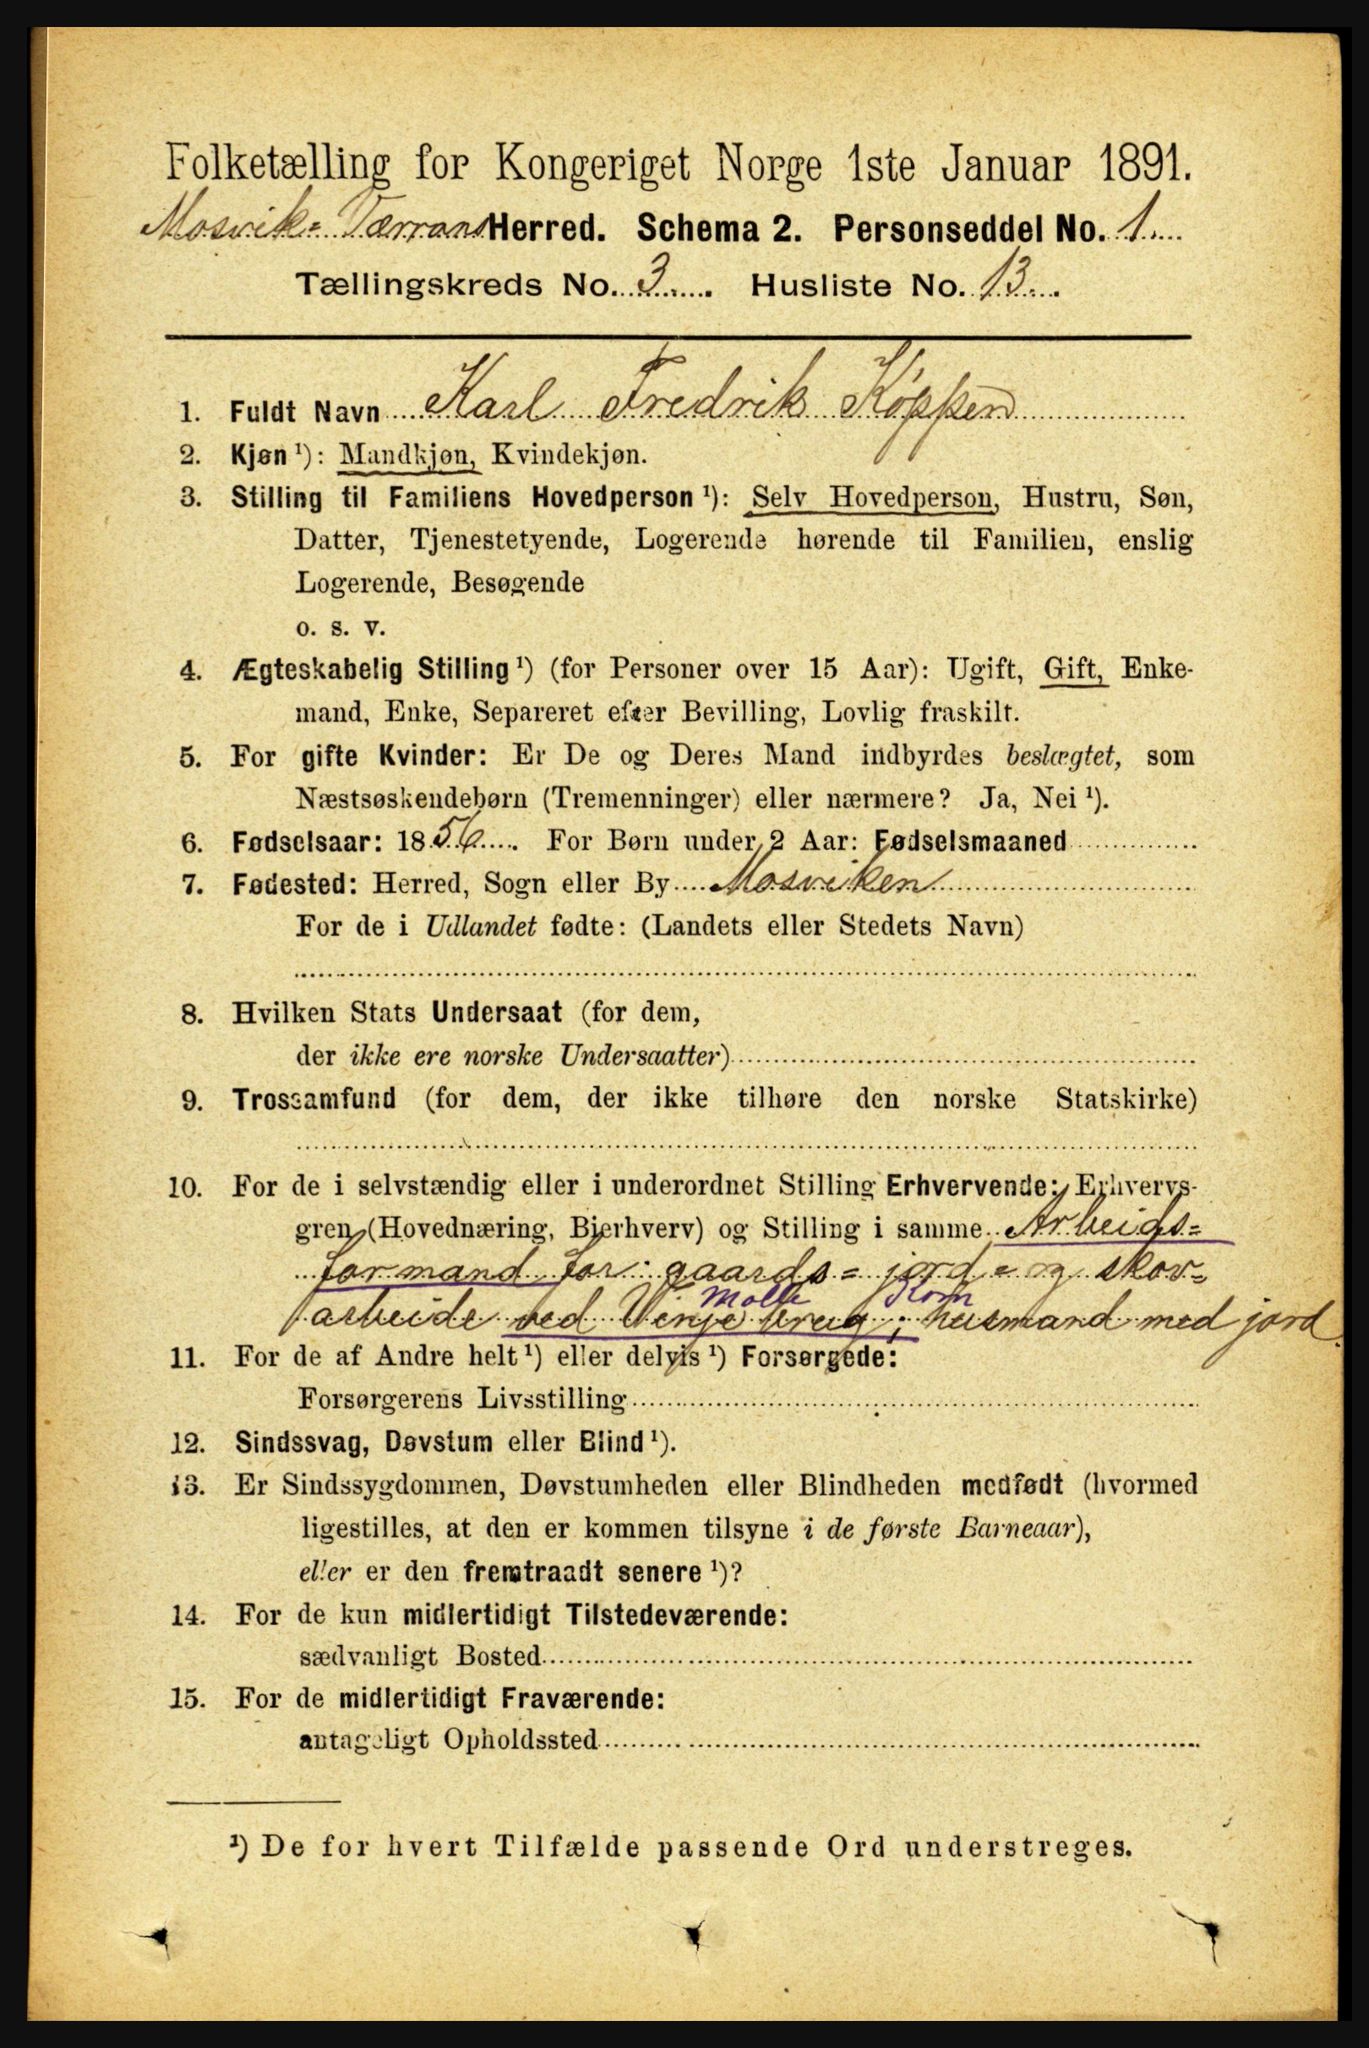 Folketælling for Kongeriget Norge 1ste Januar 1891.
Mosvik-Værrans Herred. Schema 2. Personseddel No. 1
Tællingskreds No. 3. Husliste No. 13.
1. Fuldt Navn Karl Fredrik Köppen
2. Kjøn ¹): Mandkjøn, Kvindekjøn.
3. Stilling til Familiens Hovedperson ¹): Selv Hovedperson, Hustru, Søn,
Datter, Tjenestetyende, Logerende hørende til Familien, enslig
Logerende, Besøgende
o. s. v.
4. Ægteskabelig Stilling ¹) (for Personer over 15 Aar): Ugift, Gift, Enke-
mand, Enke, Separeret efter Bevilling, Lovlig fraskilt.
5. For gifte Kvinder: Er De og Deres Mand indbyrdes beslægtet, som
Næstsøskendebørn (Tremenninger) eller nærmere? Ja, Nei ¹).
6. Fødselsaar: 1856. For Børn under 2 Aar: Fødselsmaaned
7. Fødested: Herred, Sogn eller By Mosviken
For de i Udlandet fødte: (Landets eller Stedets Navn)
8. Hvilken Stats Undersaat (for dem,
der ikke ere norske Undersaatter)
9. Trossamfund (for dem, der ikke tilhøre den norske Statskirke)
10. For de i selvstændig eller i underordnet Stilling Erhvervende: Erhvervs-
gren (Hovednæring, Bierhverv) og Stilling i samme Arbeids=
formand for gaards= jord= og skov=
Molle Korn
arbeide ved Venje brug; husmand med jord.
11. For de af Andre helt ¹) eller delvis ¹) Forsørgede:
Forsørgerens Livsstilling
12. Sindssvag, Døvstum eller Blind ¹).
13. Er Sindssygdommen, Døvstumheden eller Blindheden medfødt (hvormed
ligestilles, at den er kommen tilsyne i de første Barneaar),
eller er den fremtraadt senere ¹)?
14. For de kun midlertidigt Tilstedeværende:
sædvanligt Bosted
15. For de midlertidigt Fraværende:
antageligt Opholdssted
¹) De for hvert Tilfælde passende Ord understreges.